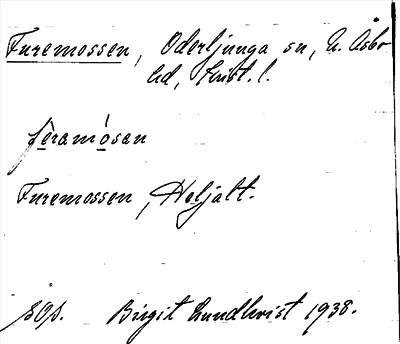 Furemossen, Oderljunga sn, N. Åsbo
hd, Krist. l.
fèramósan
Furemossen, Heljalt.
Birgit Lundkvist 1938.